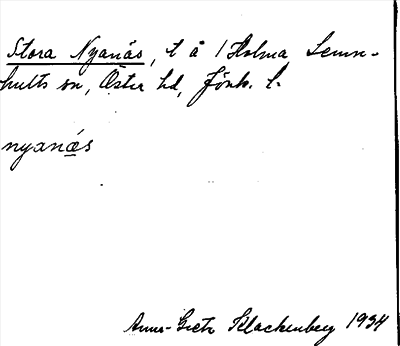 Stora Nyanäs, t å 1 Holma, Lemn-
hults sn, Öster hd, Jönk. l.
nyanǽs
Anna-Greta Klackenberg 1934